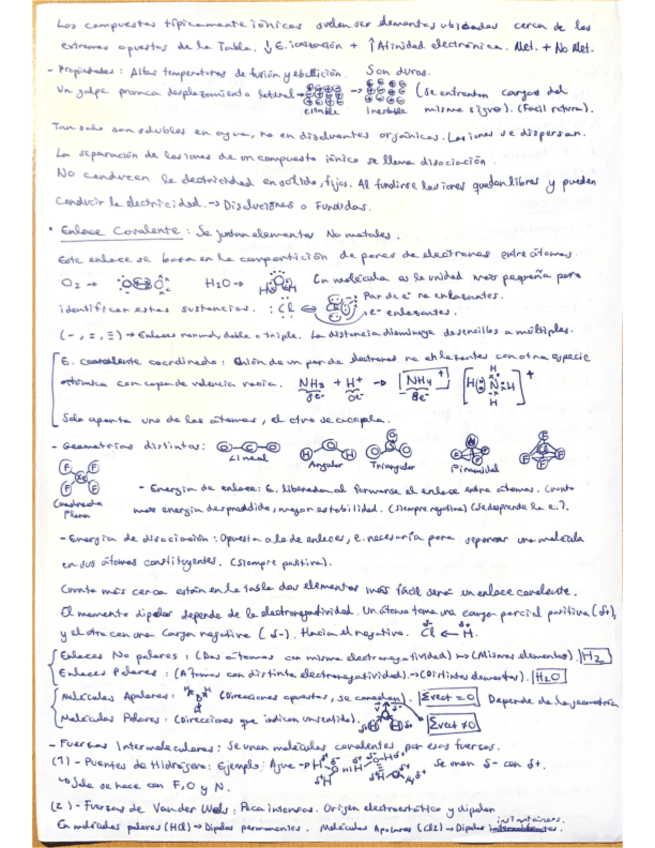 Los compuestos típicamente iónicos suelen ser elementos ubicados cerca de los
extremos opuestos de la Tabla. ↓E. ionización + ↑Afinidad electrónica. Met. + No Met.
- Propiedades: Altas temperaturas de fusión y ebullición. Son duros.
Un golpe provoca desplazamiento lateral → → (se enfrentan cargas del
estable inestable mismo signo). (Fácil rotura).
Tan solo son solubles en agua, no en disolventes orgánicos. Los iones se dispersan.
La separación de los iones de un compuesto iónico se llama disociación.
No conducen la electricidad en sólido, fijos. Al fundirse los iones quedan libres y pueden
conducir la electricidad. → Disoluciones o Fundidos.
• Enlace Covalente: Se juntan elementos No metales.
Este enlace se basa en la compartición de pares de electrones entre átomos.
O2 → H2O → La molécula es la unidad más pequeña para
identificar estas sustancias. :Cl Par de e- no enlazantes.
e- enlazantes.
(-, =, ≡) → Enlaces normal, doble o triple. La distancia disminuye de sencillos a múltiples.
E. covalente coordinado: Unión de un par de electrones no enlazantes con otra especie
atómica con capa de valencia vacía. NH3 + H+ → [NH4]+
8e- 0e- 8e-
Solo aporta uno de los átomos, el otro se acopla.
- Geometrías distintas: Lineal Angular Triangular Piramidal
Cuadrada Plana
- Energía de enlace: E. liberada al formarse el enlace entre átomos. Cuanto
más energía desprendida, mayor estabilidad. (Siempre negativa) (se desprende la e.).
- Energía de disociación: Opuesta a la de enlaces, e. necesaria para separar una molécula
en sus átomos constituyentes. (Siempre positiva).
Cuanto más cerca están en la tabla dos elementos más fácil será un enlace covalente.
El momento dipolar depende de la electronegatividad. Un átomo toma una carga parcial positiva (δ+),
y el otro con una carga negativa (δ-). Hacia el negativo. Cl ← H
Enlaces No polares: (Dos átomos con misma electronegatividad) → (Mismos elementos). H2
Enlaces Polares: (Átomos con distinta electronegatividad) → (Distintos elementos). H2O
Moléculas Apolares: (Direcciones opuestas, se cancelan). Σvect = 0 Depende de la geometría
Moléculas Polares: (Direcciones que indican un sentido). Σvect ≠ 0
- Fuerzas Intermoleculares: Se unen moléculas covalentes por esas fuerzas.
(1) - Puentes de Hidrógeno: Ejemplo: Agua → Se unen δ- con δ+.
↳ Solo se hace con F, O y N.
(2) - Fuerzas de Van der Wals: Poca intensas. Origen electrostático y dipolar
instantáneos.
En moléculas polares (HCl) → Dipolos permanentes. Moléculas Apolares (Cl2) → Dipolos